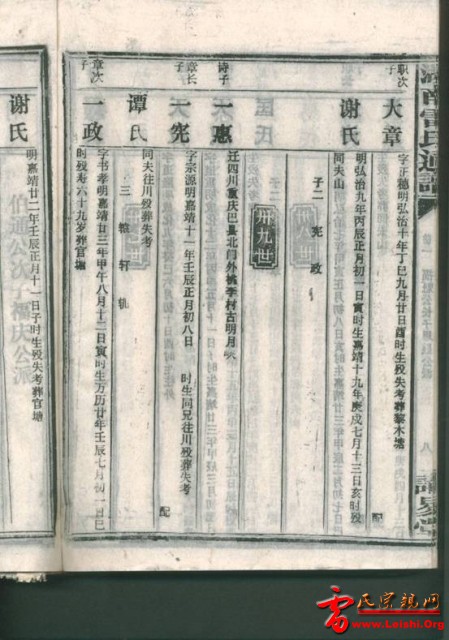 河南雷氏通谱
职次子
大章
字正德明弘治十年丁巳九月廿日酉时生殁失考葬黎木塘
配
谢氏
明弘治九年丙辰正月初一日寅时生嘉靖十九年庚戌七月十三日亥时殁
同夫山
子二 宪 政
卅九世
诗子
一惠
迁四川重庆巴县北门外桃李村古明月
章长子
一宪
字宗源明嘉靖十一年壬辰正月初八日
时生同兄往川殁葬失考
配
谭氏
同夫往川殁葬失考
三 辕 轩 轨
章次子
一政
字书孝明嘉靖廿三年甲午八月十二日寅时生万历廿年壬辰七月初一日巳
时殁寿六十九岁葬官塘
谢氏
明嘉靖廿二年壬辰正月十一日子时生殁失考葬官塘
雷氏宗亲网
www.Leishi.Org